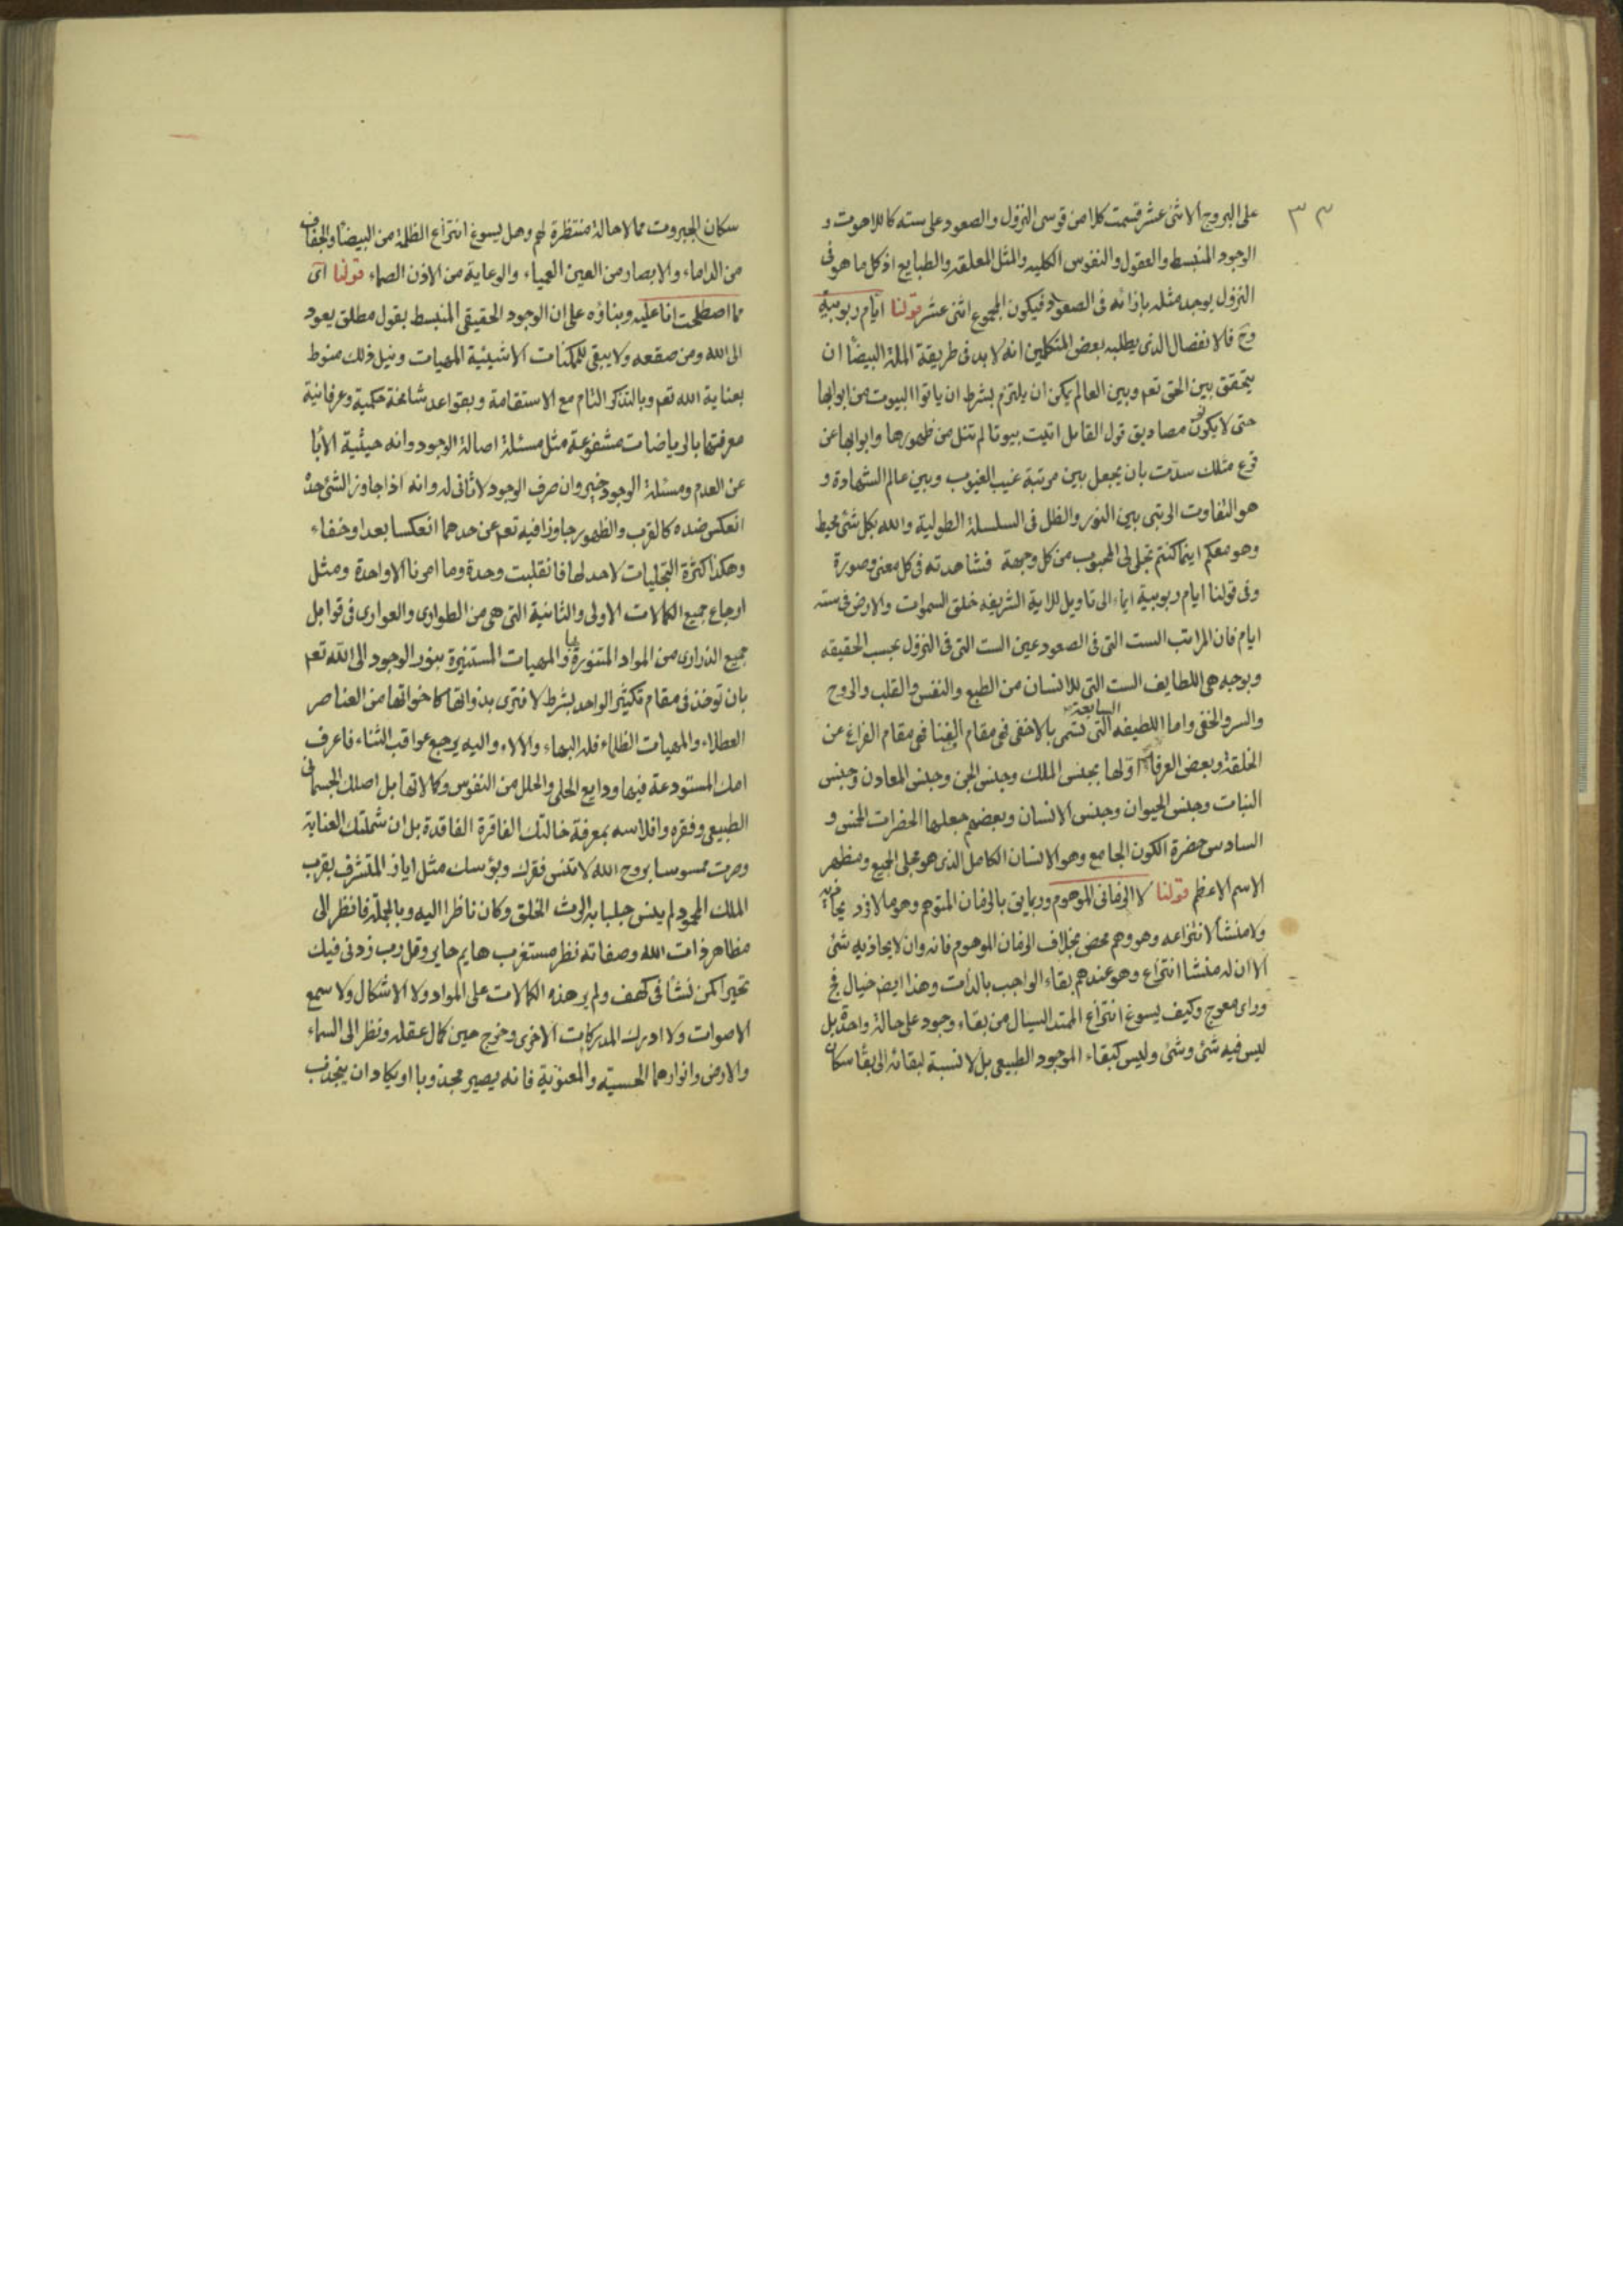 ٣٣
على البروج الاثنى عشر قسمت كلا من قوسى النزول والصعود على سته كاللاهوت و
الوجود المنبسط والعقول والنفوس الكليه والمثل المعلقه والطبايع اذ كل ما هو فى
النزول يوجد مثله بازائه فى الصعود فيكون المجموع اثنى عشر قولنا ايام ربوبية
وح فالانفصال الذى يطلبه بعض المتكلمين انه لا بد فى طريقة الملة البيضآ ان
يتحقق بين الحق تعم وبين العالم يمكن ان يلتزم بشرط ان ياتوا البيوت من ابوابها
حتى لا يكون مصاديق قول القايل اتيت بيوتا لم تنل من ظهورها وابوابها عن
قرع مثلك سدّت بان يجعل بين مرتبة غيب الغيوب وبين عالم الشهادة و
هو التفاوت الرتبى بين النور والظل فى السلسلة الطولية والله بكل شئ محيط
وهو معكم اينما كنتم تجلى لى المحبوب من كل وجهة فشاهدته فى كل معنى وصورة
وفى قولنا ايام ربوبية ايماء الى تاويل للاية الشريفه خلق السموات والارض فى سته
ايام فان المراتب الست التى فى الصعود عين الست التى فى النزول بحسب الحقيقه
وبوجه هى اللطايف الست التى للانسان من الطبع والنفس والقلب والروح
والسر والخفى واما اللطيفه السابعة التى تسمى بالاخفى فهى مقام الفنا فهى مقام الفراغ عن
الخلقة وبعض العرفاء اوّلها بجنس الملك وجنس الجن وجنس المعادن وجنس
النبات وجنس الحيوان وجنس الانسان وبعضهم جعلها الحضرات الخمس و
السادس حضرة الكون الجامع وهو الانسان الكامل الذى هو مجلى الجميع ومظهر
الاسم الاعظم قولنا لا الزمانى الموهوم وربما يق بالزمان المتوهم وهو ما لا فرد يحاذيه
ولا منشأ لانتزاعه وهو وهم محض بخلاف الزمان الموهوم فانه وان لا يحاذيه شئ
الا ان له منشا انتزاع وهو عندهم بقاء الواجب بالذات وهذا ايض خيال فج
وراى معوج وكيف يسوغ انتزاع الممتد السيال من بقاء وجود على حالة واحدة بل
ليس فيه شئ وشئ وليس كبقاء الموجود الطبيعى بل لا نسبة لبقائه الى بقآ سكان
سكان الجبروت مما لا حالة منتظرة لهم وهل يسوغ انتزاع الظلمة من البيضآ والجفاف
من الداماء والابصار من العين العمياء والوعاية من الاذن الصماء قولنا اى
مما اصطلحت انا عليه وبناؤه على ان الوجود الحقيقى المنبسط بقول مطلق يعود
الى الله ومن صقعه ولا يبقى للممكنات الا شيئية المهيات ونيل ذلك منوط
بعناية الله تعم وبالتذكر التام مع الاستقامة وبقواعد شامخة حكمية وعرفانية
معرفتها بالرياضات مشفوعة مثل مسئلة اصالة الوجود وانه حيثية الأبآ
عن العدم ومسئلة الوجود خير وان صرف الوجود لا ثانى له وانه اذا جاوز الشئ حدّه
انعكس ضده كالقرب والظهور جاوزا فيه تعم عن حدهما انعكسا بعدا وخفاء
وهكذا كثرة التجليات لا حد لها فانقلبت وحدة وما امرنا الا واحدة ومثل
ارجاع جميع الكمالات الاولى والثانية التى هى من الطوارى والعوارى فى قوابل
جميع الذرارى من المواد المتنورة بها والمهيات المستنيرة بنور الوجود الى الله تعم
بان توخذ فى مقام تكثير الواحد بشرط لا فترى بذواتها كاخواتها من العناصر
العطلاء والمهيات الظلماء فله البهاء والالاء واليه يرجع عواقب الثناء فاعرف
امك المستودعة فيها ودايع الحلى والحلل من النفوس وكمالاتها بل اصلك الجسمانى
الطبيعى وفقره وافلاسه بمعرفة خالتك الفاقرة الفاقدة بل ان شملتك العناية
وصرت ممسوسا بروح الله لا تنس فقرك وبؤسك مثل اياز المتشرف بقرب
الملك المحمود لم ينس جلبابه الرث الخلق وكان ناظرا اليه وبالجملة فانظر الى
مظاهر ذات الله وصفاته نظر مستغرب هايم حاير وقل رب زدنى فيك
تحيرا كمن نشأ فى كهف ولم ير هذه الكمالات على المواد ولا الاشكال ولا سمع
الاصوات ولا ادرك المدركات الاخرى وخرج حين كمال عقله ونظر الى السماء
والارض وانوارهما الحسيّة والمعنويّة فانه يصير مجذوبا او يكاد ان ينجذب